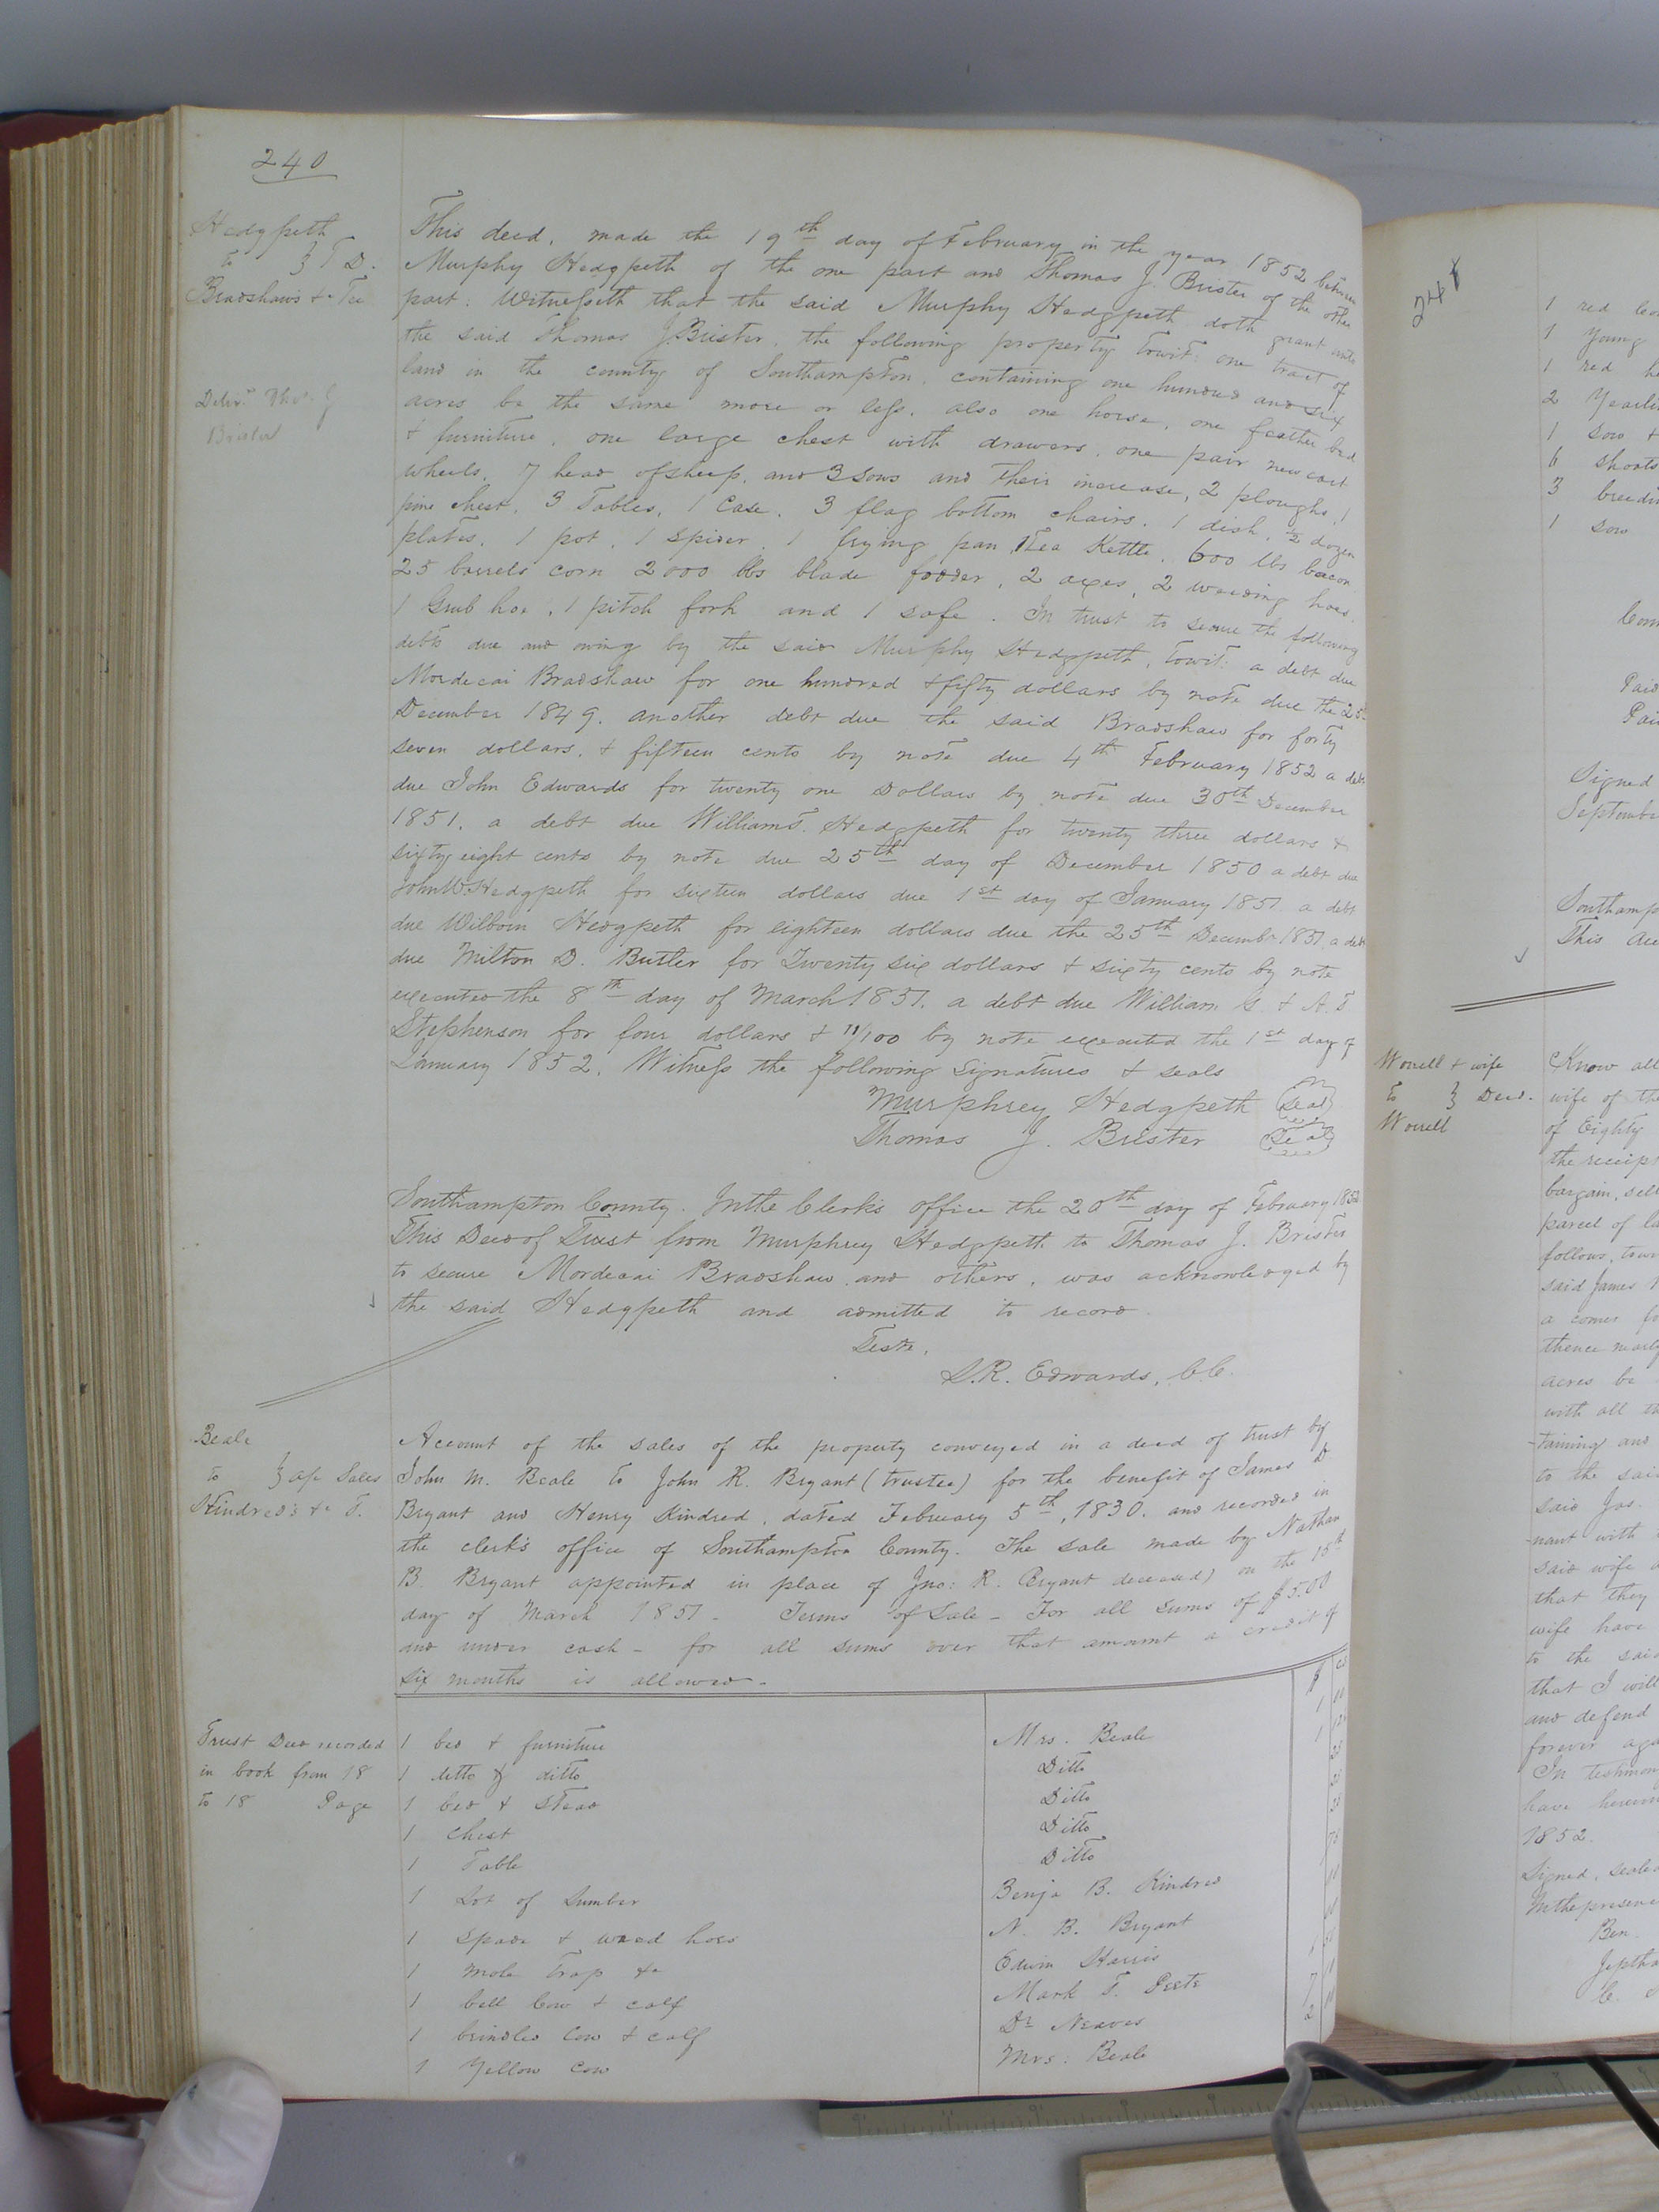 240
Hedgpeth
to } T D.
Bradshaw's &c Tee
Deliv.d Thos. J
Brister
This deed, made the 19th day of February in the year 1852 between
Murphy Hedgpeth of the one part and Thomas J. Brister of the other
part. Witnesseth that the said Murphy Hedgpeth doth grant unto
the said Thomas J Brister, the following property towit: one tract of
land in the county of Southampton, containing one hundred and six
acres be the same more or less, also one horse, one feather bed
& furniture, one large chest with drawers, one pair new cart
wheels, 7 head of sheep, and 3 sows and their increase, 2 ploughs, 1
pine chest, 3 Tables, 1 Case, 3 flag bottom chairs, 1 dish, ½ dozen
plates, 1 pot, 1 spider, 1 frying pan, 1 Tea Kettle, 600 lbs bacon
25 barrels corn 2000 lbs blade fodder, 2 axes, 2 weeding hoes
1 Grub hoe, 1 pitch fork and 1 safe. In trust to secure the following
debts due and owing by the said Murphy Hedgpeth, towit: a debt due
Mordecai Bradshaw for one hundred & fifty dollars by note due the 25th
December 1849. another debt due the said Bradshaw for forty
seven dollars, & fifteen cents by note due 4th February 1852 a debt
due John Edwards for twenty one Dollars by note due 30th December
1851. a debt due William T. Hedgpeth for twenty three dollars &
sixty eight cents by note due 25th day of December 1850 a debt due
John W Hedgpeth for sixteen dollars due 1st day of January 1851 a debt
due Wilborn Hedgpeth for eighteen dollars due the 25th December 1851 a debt
due Milton D. Butler for Twenty six dollars & sixty cents by note
executed the 8th day of March 1851. a debt due William G. & A. T
Stephenson for four dollars & 11/100 by note executed the 1st day of
January 1852. Witness the following signatures & seals
Murphrey Hedgpeth (seal)
Thomas J. Brister (seal)
Southampton County. In the Clerk's office the 20th day of February 1852
This Deed of Trust from Murphrey Hedgpeth to Thomas J. Brister
to secure Mordecai Bradshaw and others, was acknowledged by
the said Hedgpeth and admitted to record.
Teste,
L.R. Edwards, C.C.
Beale
to } a/c Sales
Kindred's &c T.
Account of the sales of the property conveyed in a deed of trust by
John M. Beale to John R. Bryant (trustee) for the benefit of James D.
Bryant and Henry Kindred, dated February 5th, 1830. and recorded in
the clerk's office of Southampton County. The sale made by Nathan
B. Bryant appointed in place of Jno: R. Bryant deceased) on the 15th
day of March 1851 - Terms of Sale - For all sums of $5.00
and under cash - for all sums over that amount a credit of
six months is allowed -
Trust Deed recorded
in book from 18
to 18 Page
1 bed & furniture Mrs. Beale
1 ditto & ditto Ditto
1 bed & stead Ditto
1 chest Ditto
1 Table Ditto
1 Lot of Lumber Benja B. Kindred
1 spade & weed hoes N. B. Bryant
1 mole trap &c Edwin Harris
1 bell Cow & calf Mark T. Peete
1 brindled Cow & calf Dr Neaves
1 Yellow Cow Mrs. Beale
241
1 red
1 Young
1 red
2
1 sow &
6 shoats
3
1 sow
Paid
Signed
This
Worrell & wife
to } Deed.
Worrell
Know all
wife of the
of Eighty
the receipt
bargain, sell
parcel of
follows, towit
said James
a corner
thence nearly
acres be
with all
taining and
to the said
said Jas.
nant with
said wife
that they
wife have
to the said
that I will
and defend
forever
In testimony
have
1852.
Signed, sealed
In the presence
Ben.